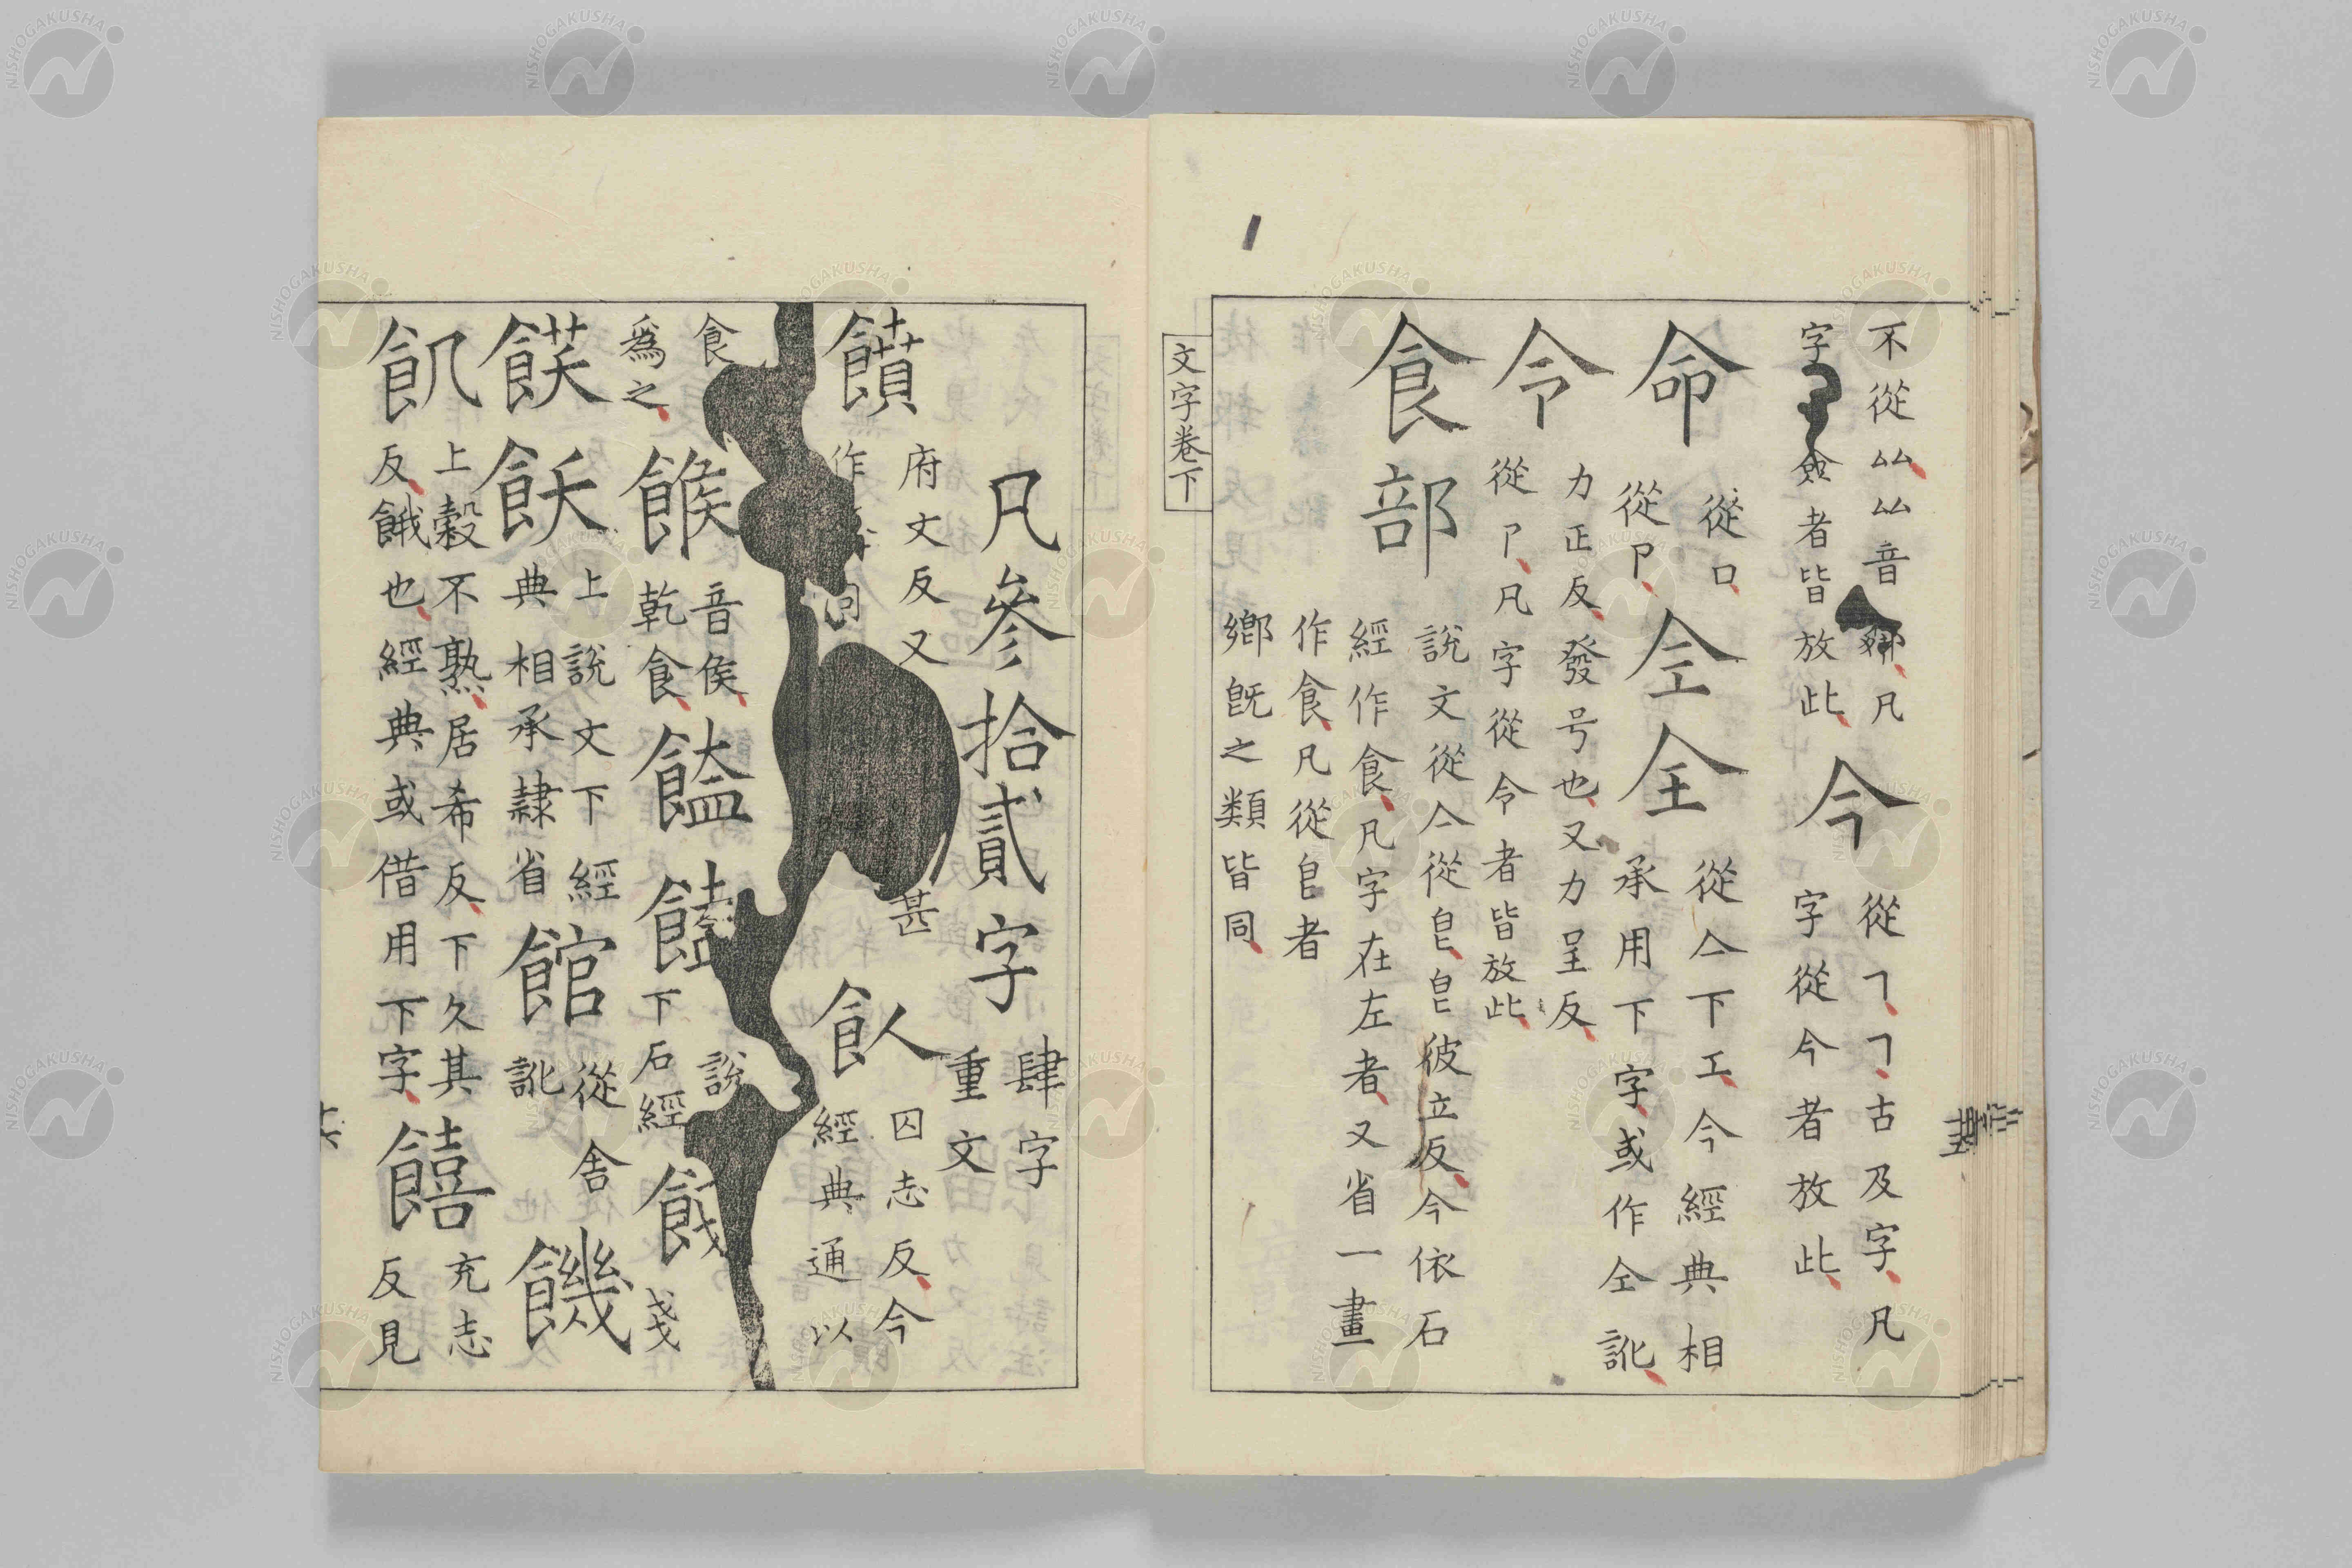 不從厸厸音鄰凡
字
者皆放此
今
從㇕㇕古及字凡
字從今者放此
命
從口
從卩
仝全
從亼下工今經典相
承用下字或作仝訛
令
力正反發号也又力呈反
從卩凡字從令者皆放此
食部
說文從亼從皀皀彼立反今依石
經作食凡字在左者又省一畫
作食凡從皀者
鄉旣之類皆同
文字卷下
凡參拾貳字
肆字
重文
饙
府文反又
作
同
甚
飤
囚志反今
經典通以
食
為之
餱
音侯
乾食
饁
饐
說
下石經
餞
飫
上說文下經
典相承隷省
館
從舍
訛
饑
飢
上穀不熟居希反下久其
反餓也經典或借用下字
饎
充志
反見
NISHOGAKUSHA